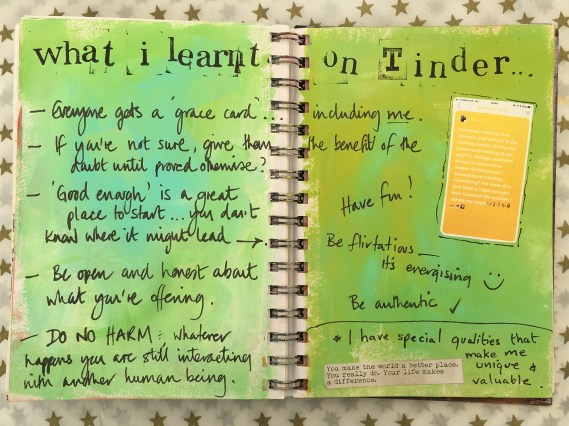 what i learnt on Tinder...
– Everyone gets a 'grace card'... including me.
– If you're not sure, give them the benefit of the
doubt until proved otherwise?
– 'Good enough' is a great
place to start... you don't
know where it might lead →.
– Be open and honest about
what you're offering.
– DO NO HARM : whatever
happens you are still interacting
with another human being.
Have fun!
Be flirtatious –
it's energising
Be authentic ✓
* I have special qualities that
make me
unique &
valuable.
You make the world a better place.
You really do. Your life makes
a difference.